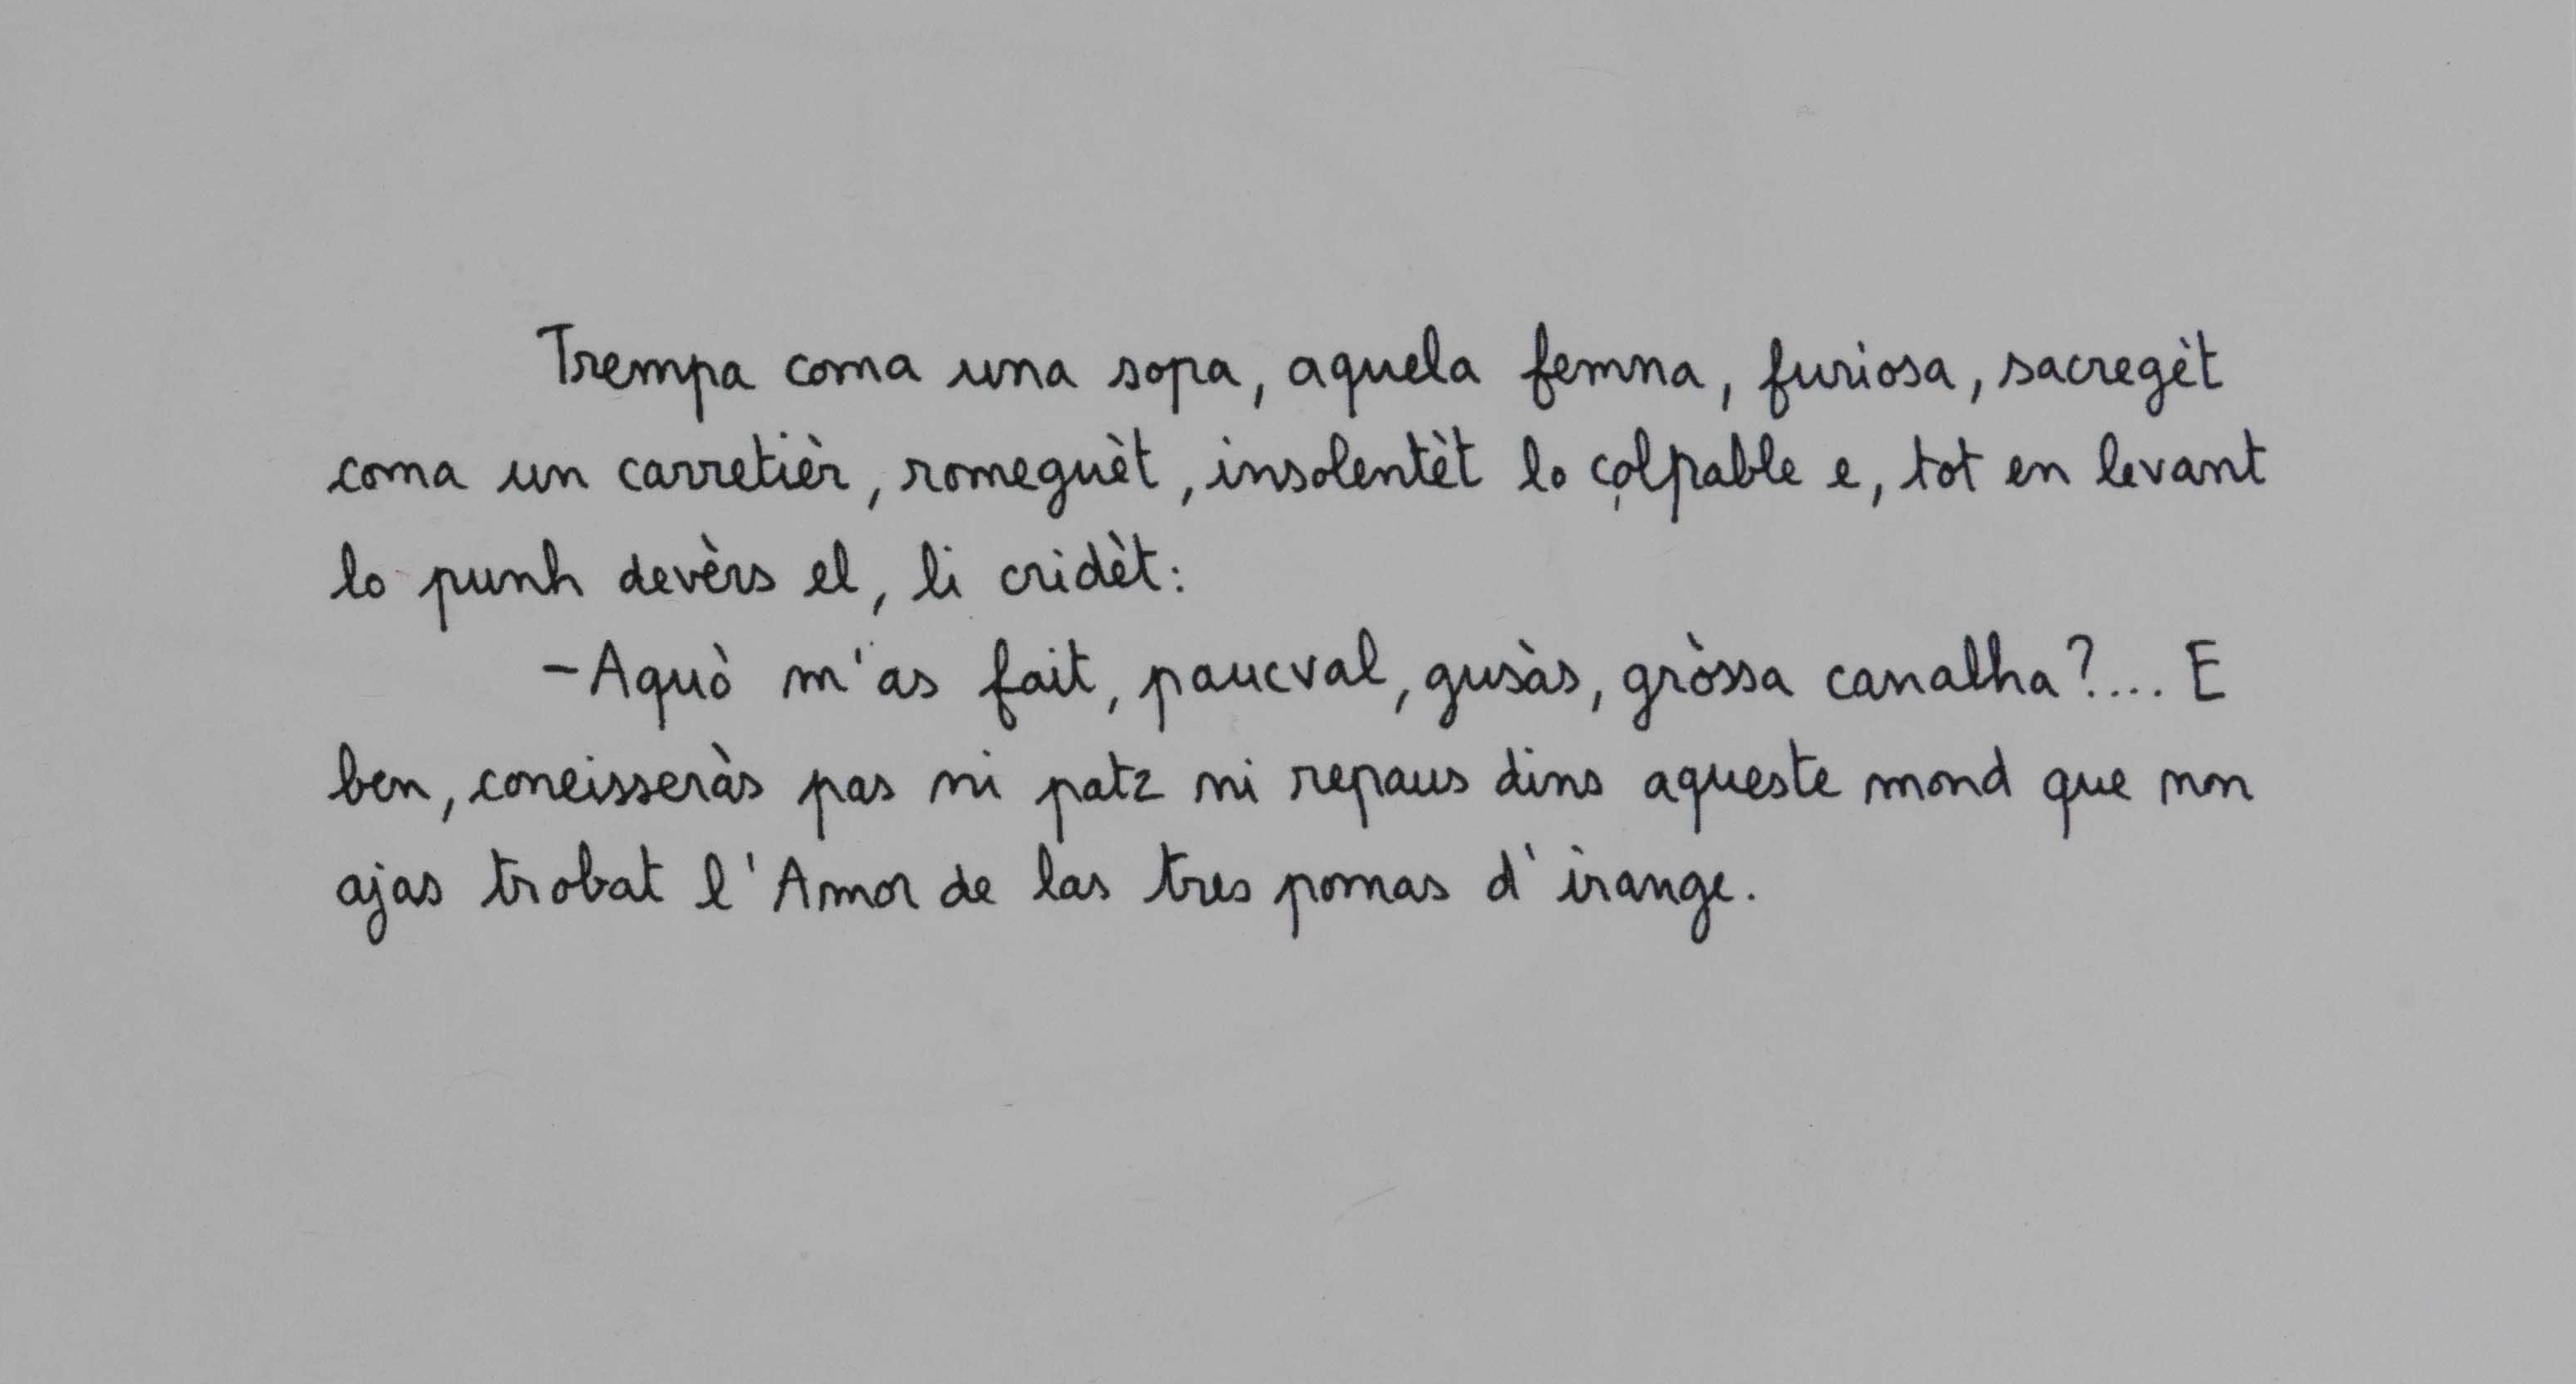 Trempa coma una sopa, aquela femna, furiosa, sacregèt
coma un carretièr, romeguèt, insolentèt lo colpable e, tot en levant
lo punh devèrs el, li cridèt:
- Aquò m'as fait, paucval, gusàs, gròssa canalha?... E
ben, coneisseràs pas ni patz ni repaus dins aqueste mond que non
ajas trobat l'Amor de las tres pomas d'irange.